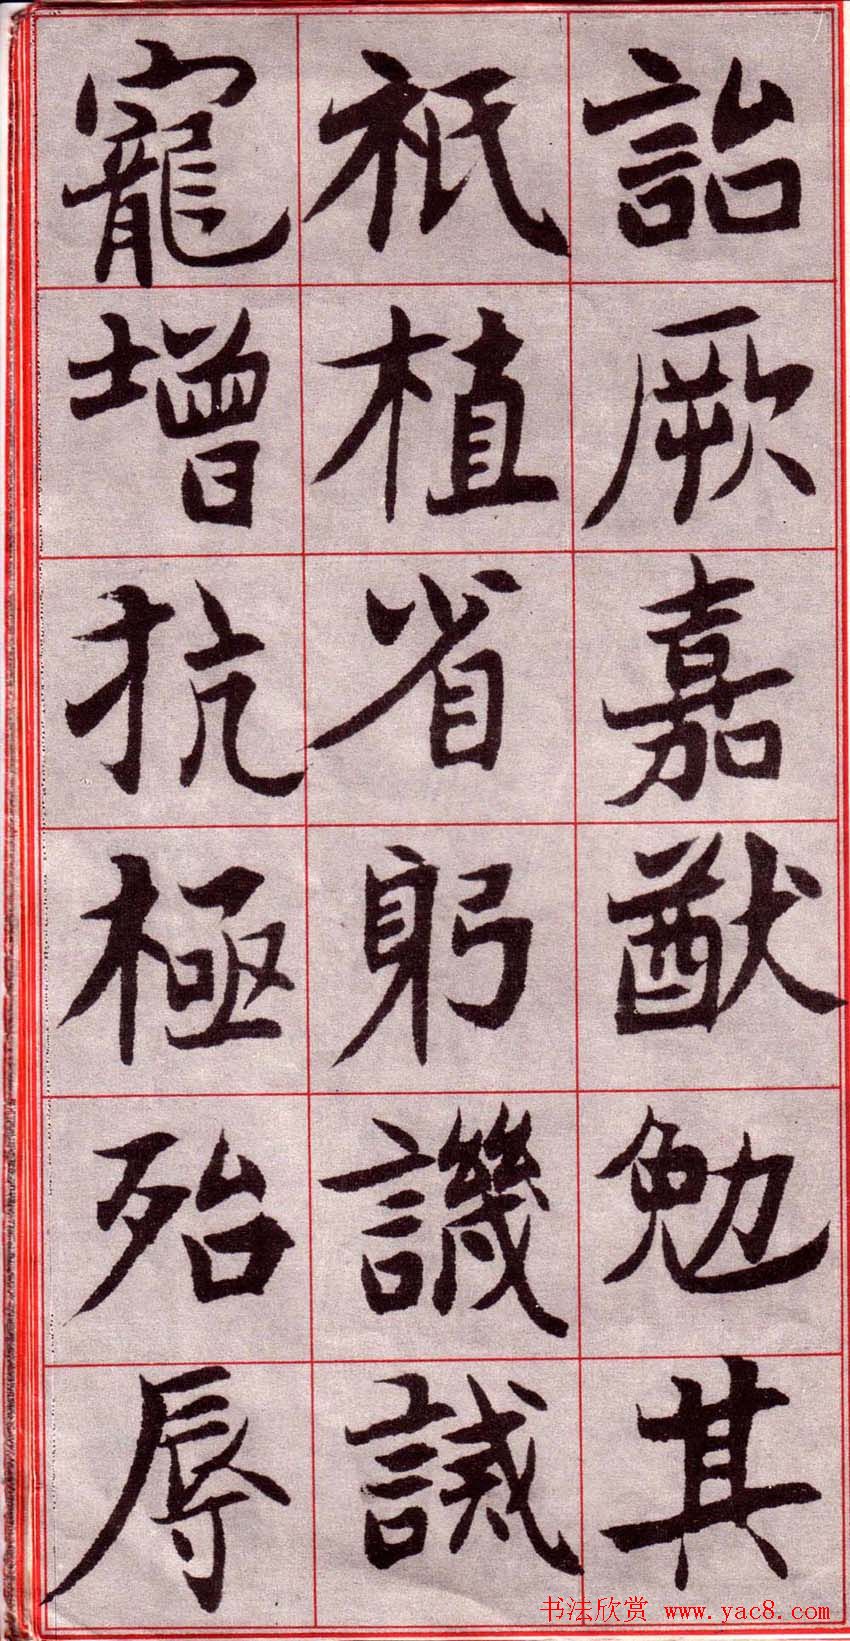 詒厥嘉猷勉其
祗植省躬譏誡
寵增抗極殆辱
书法欣赏 www.yac8.com